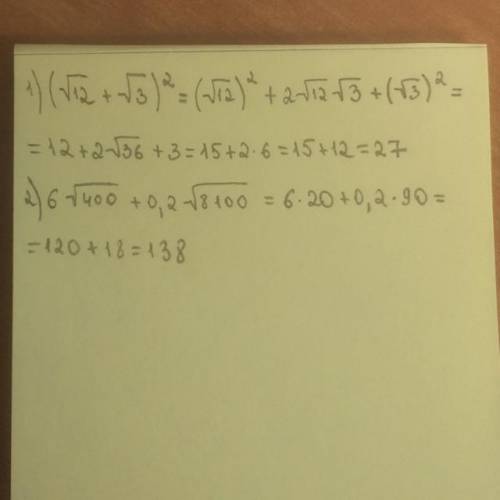 1) (√12 + √3)² = (√12)² + 2√12√3 + (√3)² =
= 12 + 2√36 + 3 = 15 + 2·6 = 15 + 12 = 27
2) 6√400 + 0,2√8100 = 6·20 + 0,2·90 =
= 120 + 18 = 138